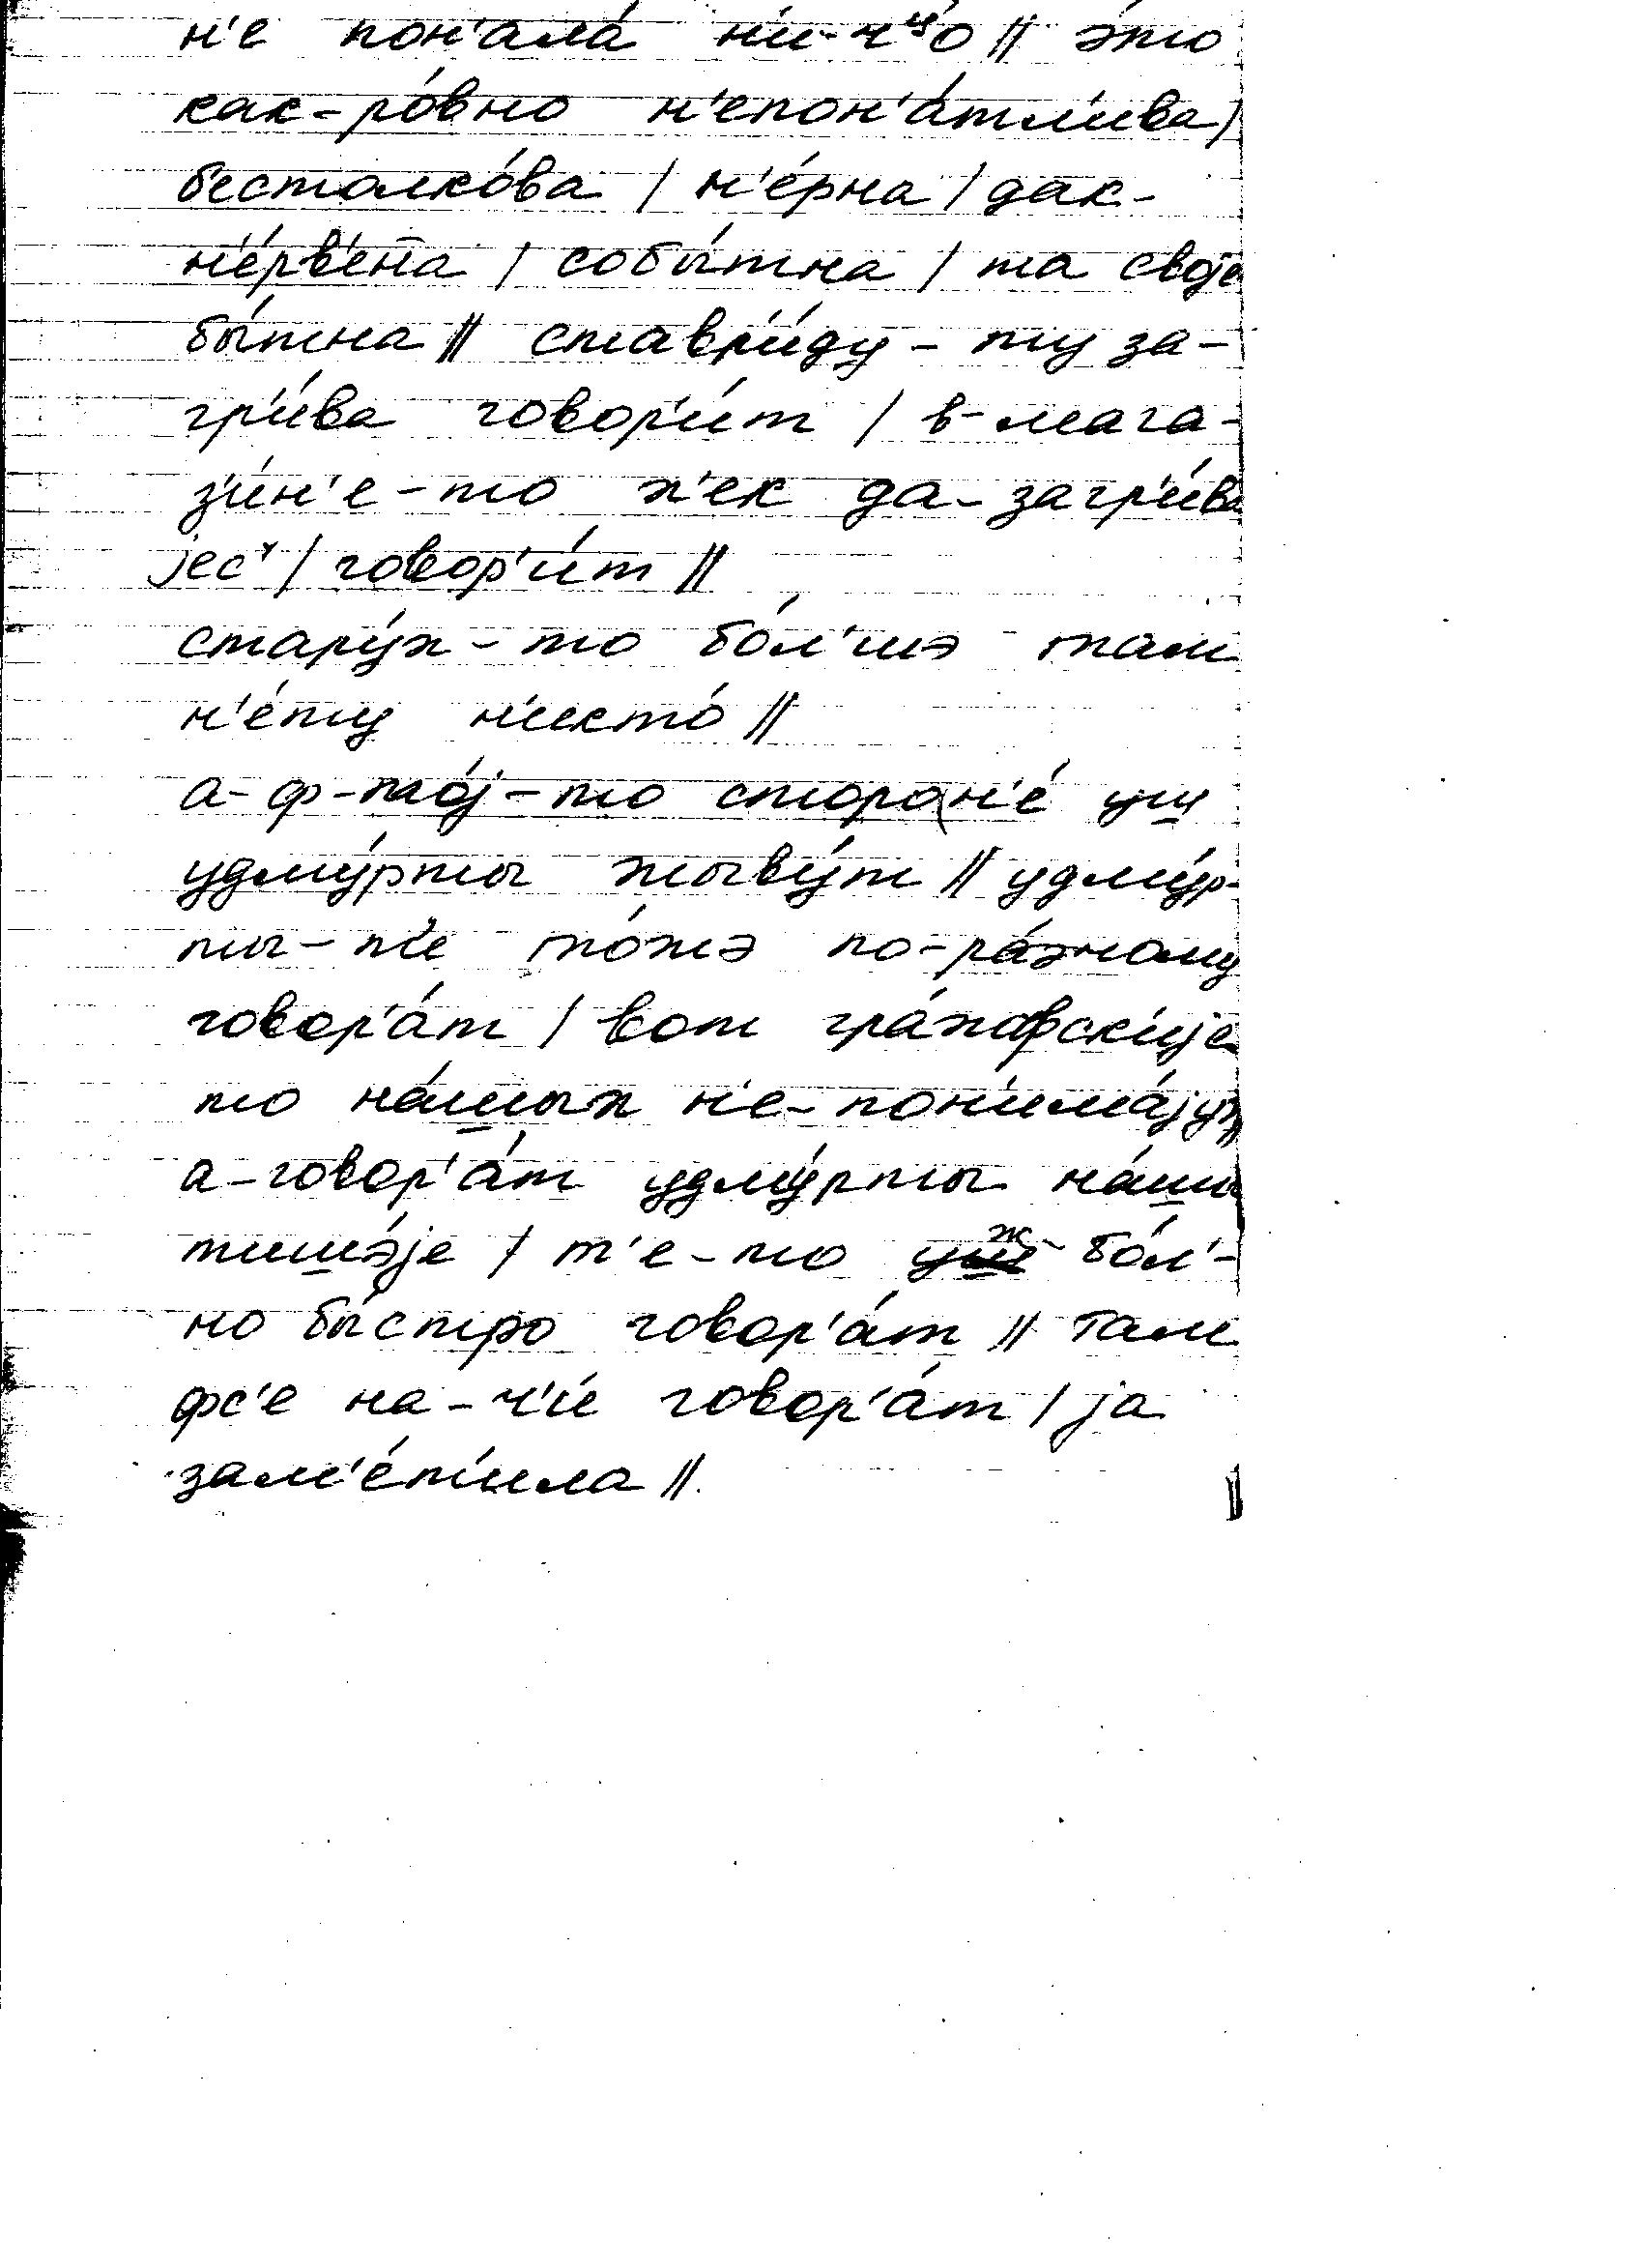 н'е пон'ала́ н'и́-ч'ᶣо || э́то
как-ро́вно н'епон'а́тл'ива |
б'естолко́ва | н'е́рна | дак-
н'е́рв'е́на | собы́тна | та своjе
бы́тна || ставр'и́ду-ту за-
гр'и́ва говор'и́т | в-мага-
з'и́н'е-то х'ек да-загр'и́ва
jес' | говор'и́т ||
стару́х-то бо́л'шэ там
н'е́ту н'икто́ ||
а-ф-то́j-то сторон'е́ уш
удму́рты жыву́т || удму́р-
ты-т'е то́жэ по-ра́зному
говор'а́т | вот гра́хофск'иjе
то на́шых н'е-пон'има́jут |
а-говор'а́т удму́рты на́шы
тишэ́jе | т'е-то уж бо́л'-
но бы́стро говор'а́т || там
фс'е на-ч'и́ говор'а́т | jа
зам'е́т'ила ||